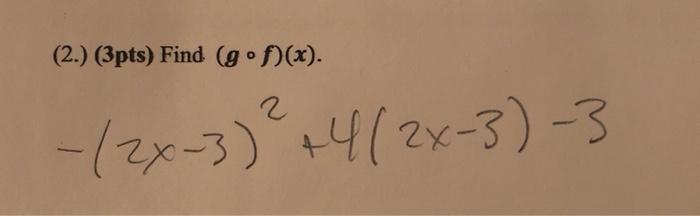 (2.) (3pts) Find (g ∘ f)(x).
-(2x-3)² +4(2x-3) -3